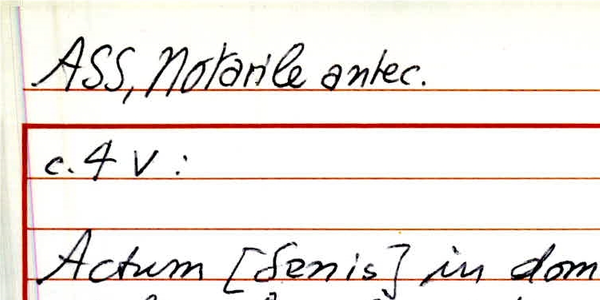 ASS, Notarile antec.
c. 4 v :
Actum [Senis] in dom